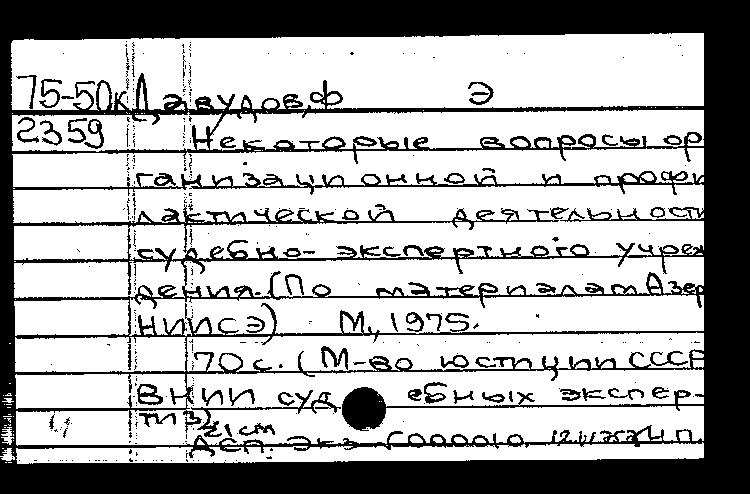 75-50к Давудов, Ф Э
2359 Некоторые вопросы ор
ганизационной и профи
лактической деятельности
судебно-экспертного учреж
дения. (По материалам Азер
НИИСЭ) М., 1975.
70 с. (М-во юстиции СССР
ВНИИ судебных экспер-
тиз)
21 см
ДСП. Экз